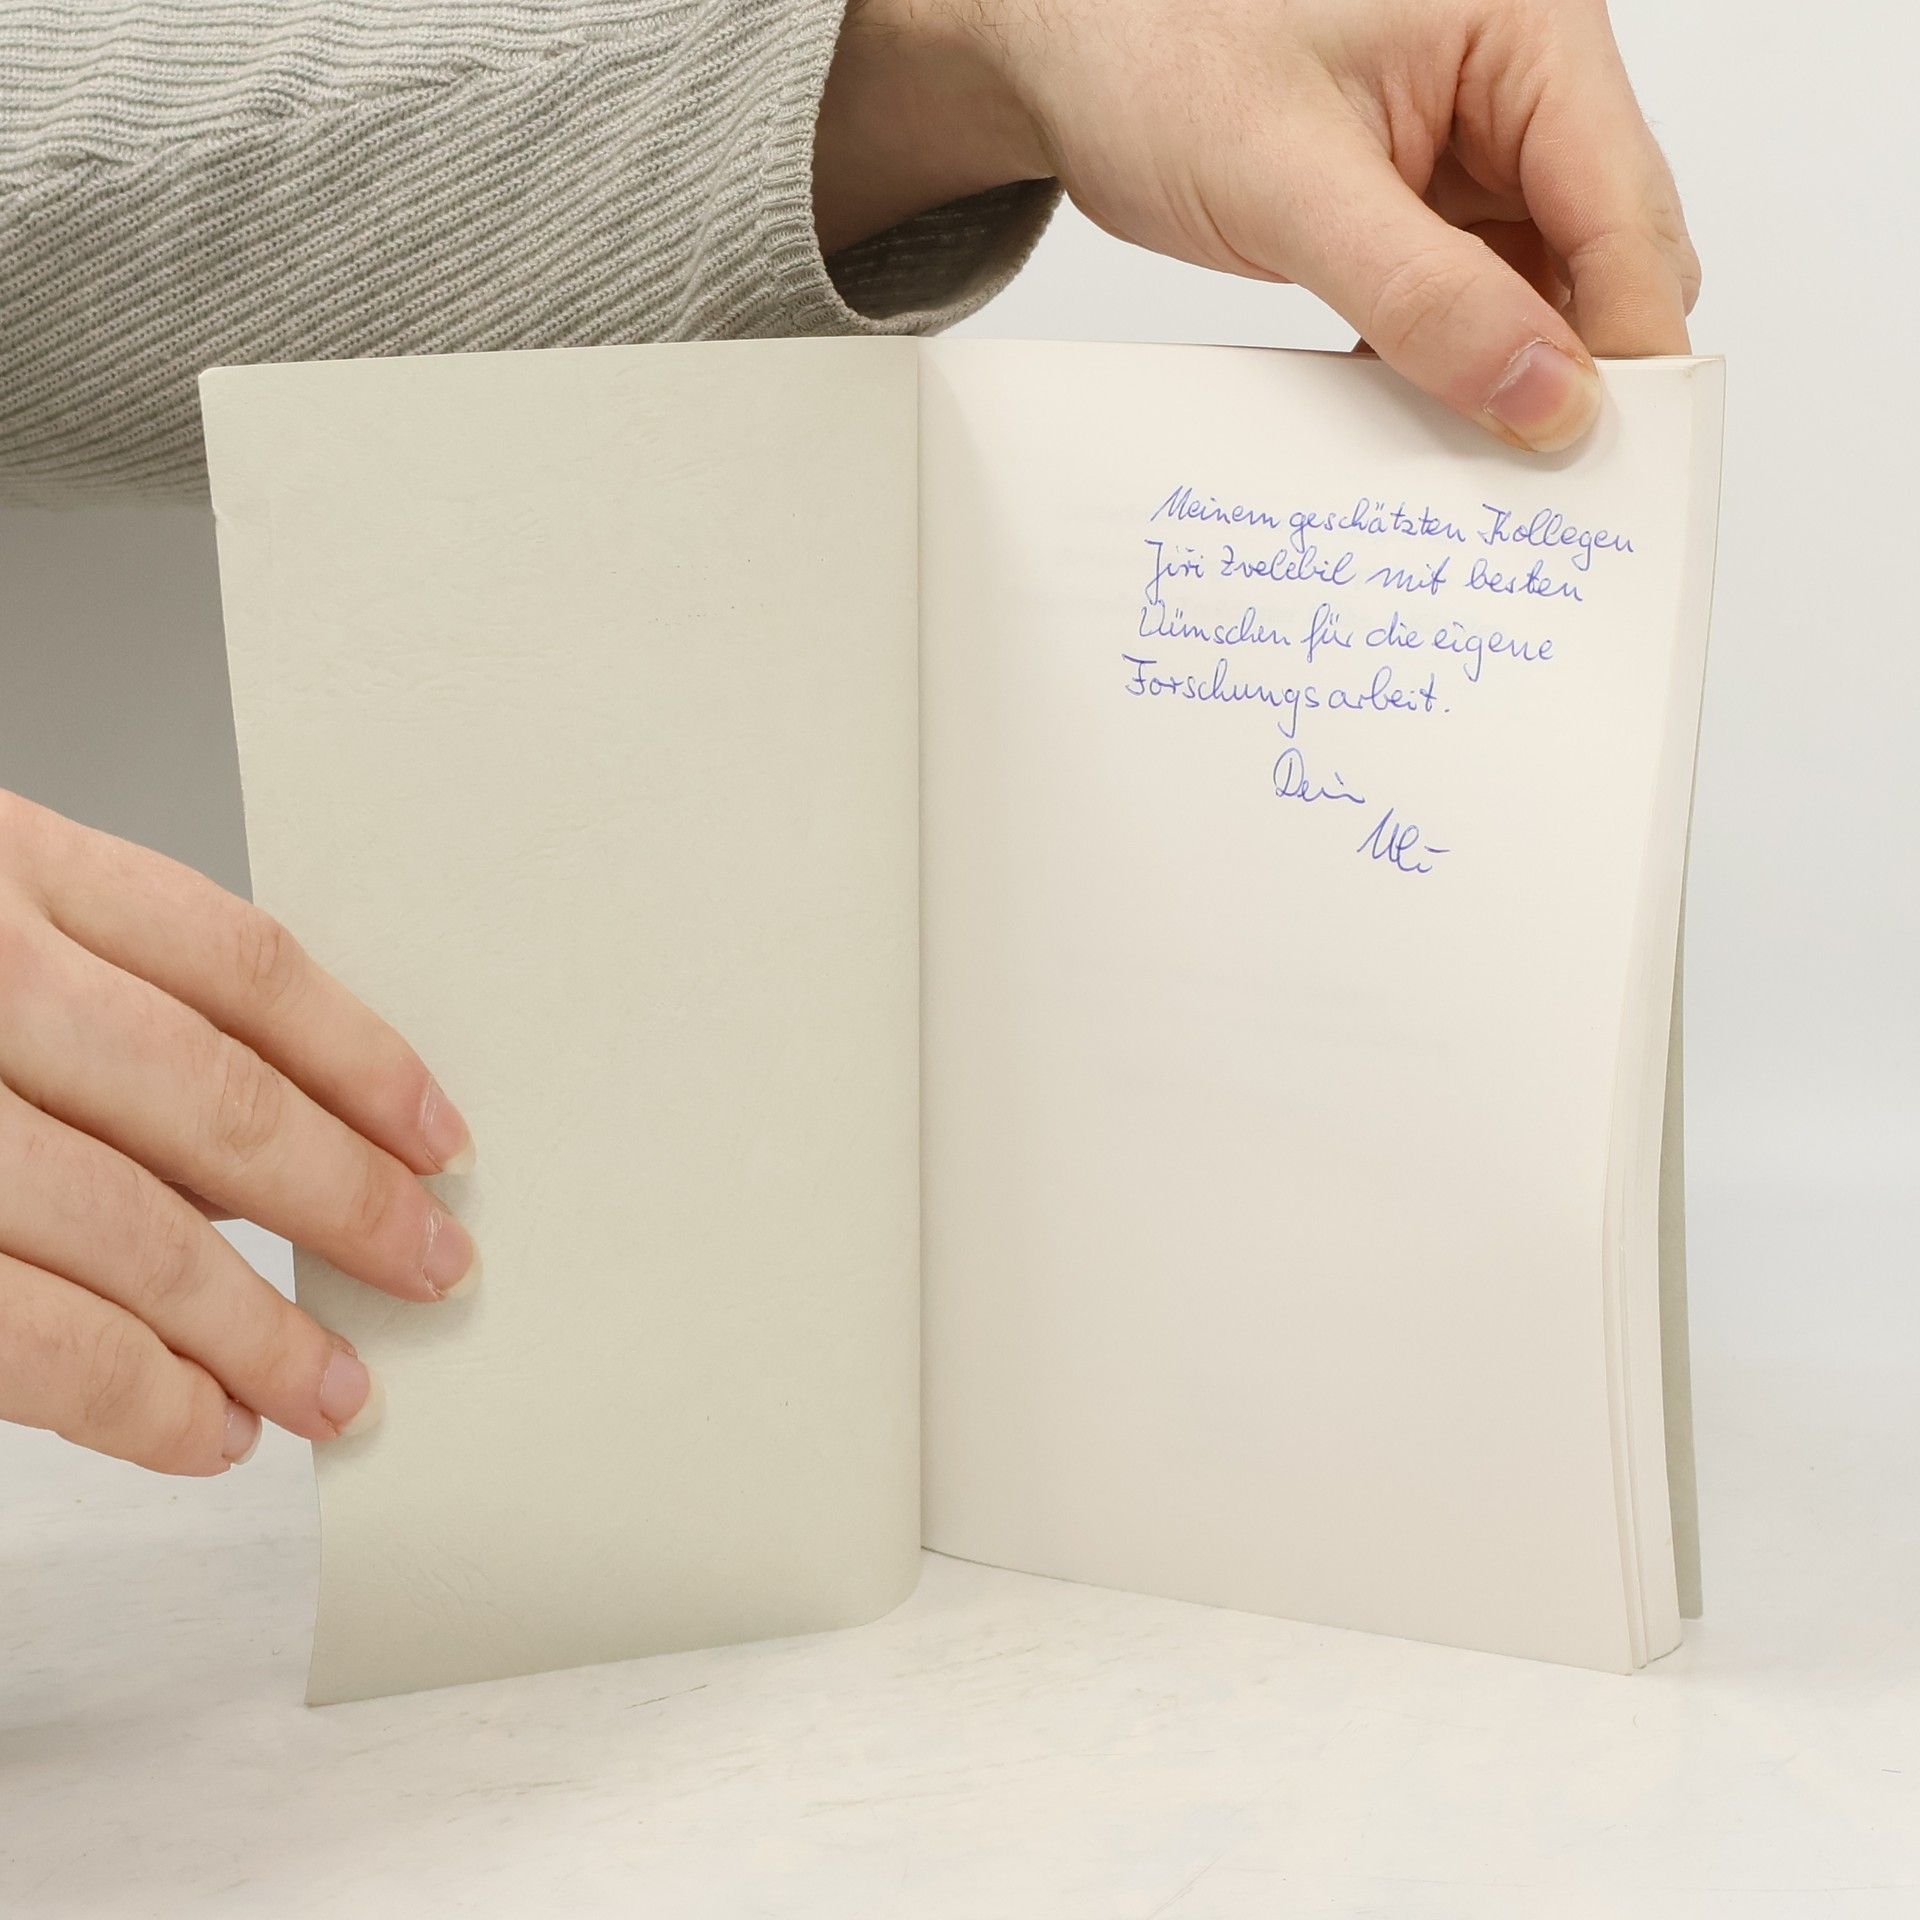 Meinem geschätzten Kollegen
Jiří Zvelebil mit besten
Wünschen für die eigene
Forschungsarbeit.
Dein
Uli